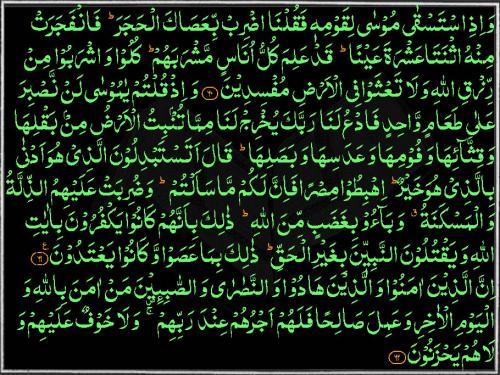 وَاِذِ اسْتَسْقٰى مُوْسٰى لِقَوْمِهٖ فَقُلْنَا اضْرِبْ بِّعَصَاكَ الْحَجَرَ ؕ فَانْفَجَرَتْ
مِنْهُ اثْنَتَا عَشْرَةَ عَيْنًا ؕ قَدْ عَلِمَ كُلُّ اُنَاسٍ مَّشْرَبَهُمْ ؕ كُلُوْا وَاشْرَبُوْا مِنْ
رِّزْقِ اللّٰهِ وَلَا تَعْثَوْا فِى الْاَرْضِ مُفْسِدِيْنَ ﴿۶۰﴾ وَاِذْ قُلْتُمْ يٰمُوْسٰى لَنْ نَّصْبِرَ
عَلٰى طَعَامٍ وَّاحِدٍ فَادْعُ لَنَا رَبَّكَ يُخْرِجْ لَنَا مِمَّا تُنْۢبِتُ الْاَرْضُ مِنْۢ بَقْلِهَا
وَقِثَّآئِهَا وَفُوْمِهَا وَعَدَسِهَا وَبَصَلِهَا ؕ قَالَ اَتَسْتَبْدِلُوْنَ الَّذِىْ هُوَ اَدْنٰى
بِالَّذِىْ هُوَ خَيْرٌ ؕ اِهْبِطُوْا مِصْرًا فَاِنَّ لَكُمْ مَّا سَاَلْتُمْ ؕ وَضُرِبَتْ عَلَيْهِمُ الذِّلَّةُ
وَالْمَسْكَنَةُ وَبَآءُوْ بِغَضَبٍ مِّنَ اللّٰهِ ؕ ذٰلِكَ بِاَنَّهُمْ كَانُوْا يَكْفُرُوْنَ بِاٰيٰتِ
اللّٰهِ وَيَقْتُلُوْنَ النَّبِيّٖنَ بِغَيْرِ الْحَقِّ ؕ ذٰلِكَ بِمَا عَصَوْا وَّكَانُوْا يَعْتَدُوْنَ ﴿۶۱﴾
اِنَّ الَّذِيْنَ اٰمَنُوْا وَالَّذِيْنَ هَادُوْا وَالنَّصٰرٰى وَالصّٰبِـِٕيْنَ مَنْ اٰمَنَ بِاللّٰهِ وَ
الْيَوْمِ الْاٰخِرِ وَعَمِلَ صَالِحًا فَلَهُمْ اَجْرُهُمْ عِنْدَ رَبِّهِمْ ۚ وَلَا خَوْفٌ عَلَيْهِمْ وَ
لَا هُمْ يَحْزَنُوْنَ ﴿۶۲﴾